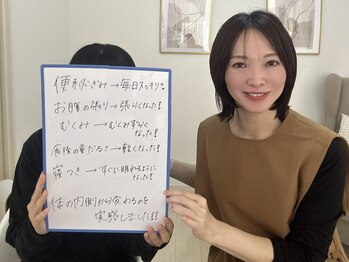 便秘ぎみ→毎日スッキリ
お腹の張り→張らなくなった!
むくみ→むくみずらく
なった!
食後の重だるさ→軽くなった!
寝つき→すぐに眠れるように
なった!
体の内側から変わるのを
実感しました!!